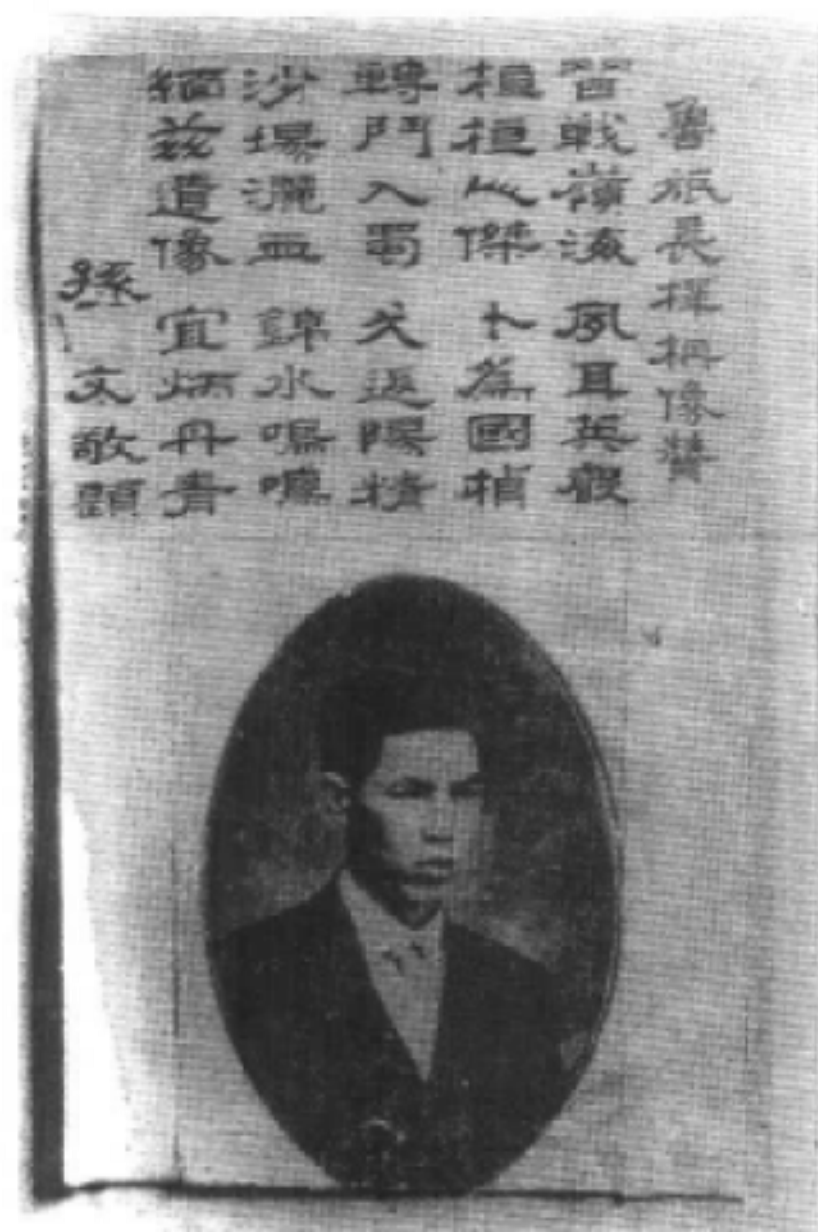 魯旅長擇柄像贊
昔戰嶺海 夙耳英
桓桓 傑 卜為國楨
轉鬥入蜀 返陽精
沙場灑血 錦水嗚
緬茲遺像 宜炳丹青
孫文敬題